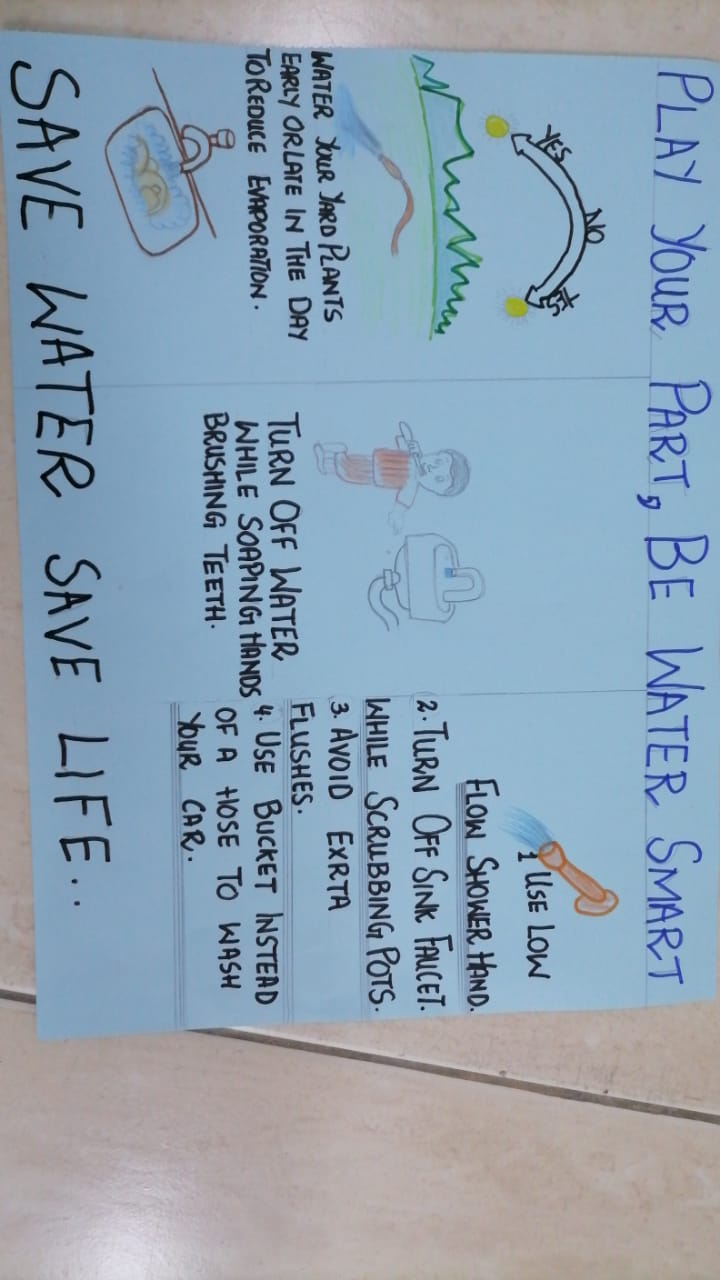 PLAY YOUR PART, BE WATER SMART
YES
NO
YES
WATER YOUR YARD PLANTS
EARLY OR LATE IN THE DAY
TO REDUCE EVAPORATION.
TURN OFF WATER
WHILE SOAPING HANDS
BRUSHING TEETH.
1 USE LOW
FLOW SHOWER HAND.
2. TURN OFF SINK FAUCET.
WHILE SCRUBBING POTS.
3. AVOID EXRTA
FLUSHES.
4. USE BUCKET INSTEAD
OF A HOSE TO WASH
YOUR CAR.
SAVE WATER SAVE LIFE..